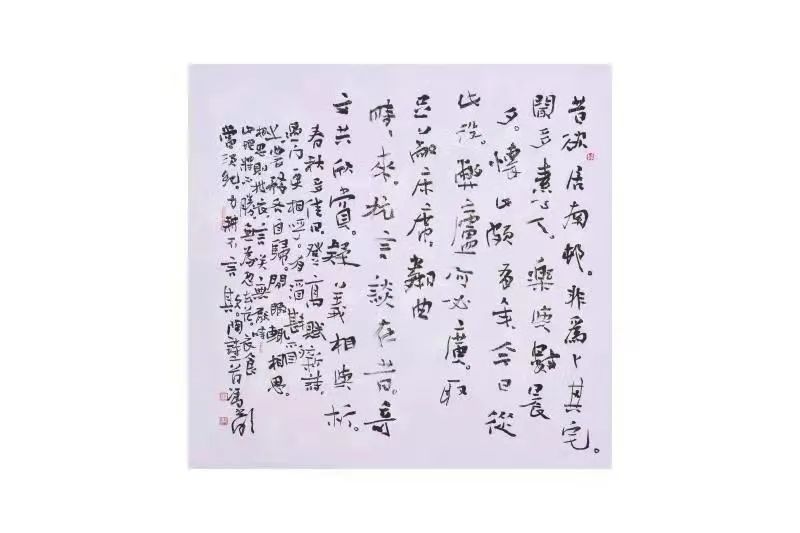 昔欲居南邨。非爲卜其宅。
聞多素心人。樂與數晨
夕。懷此頗有年。今日從
此役。弊廬何必廣。取
足蔽床席。鄰曲
時時來。抗言談在昔。奇
文共欣賞。疑義相與析。
春秋多佳日。登高賦新詩。
過門更相呼。有酒斟酌
之。農務各自歸。閒暇輒相思。
相思則披衣。言笑無厭時。
此理將不勝。無爲忽去茲。衣食
當須紀。力耕不吾欺。陶詩二首